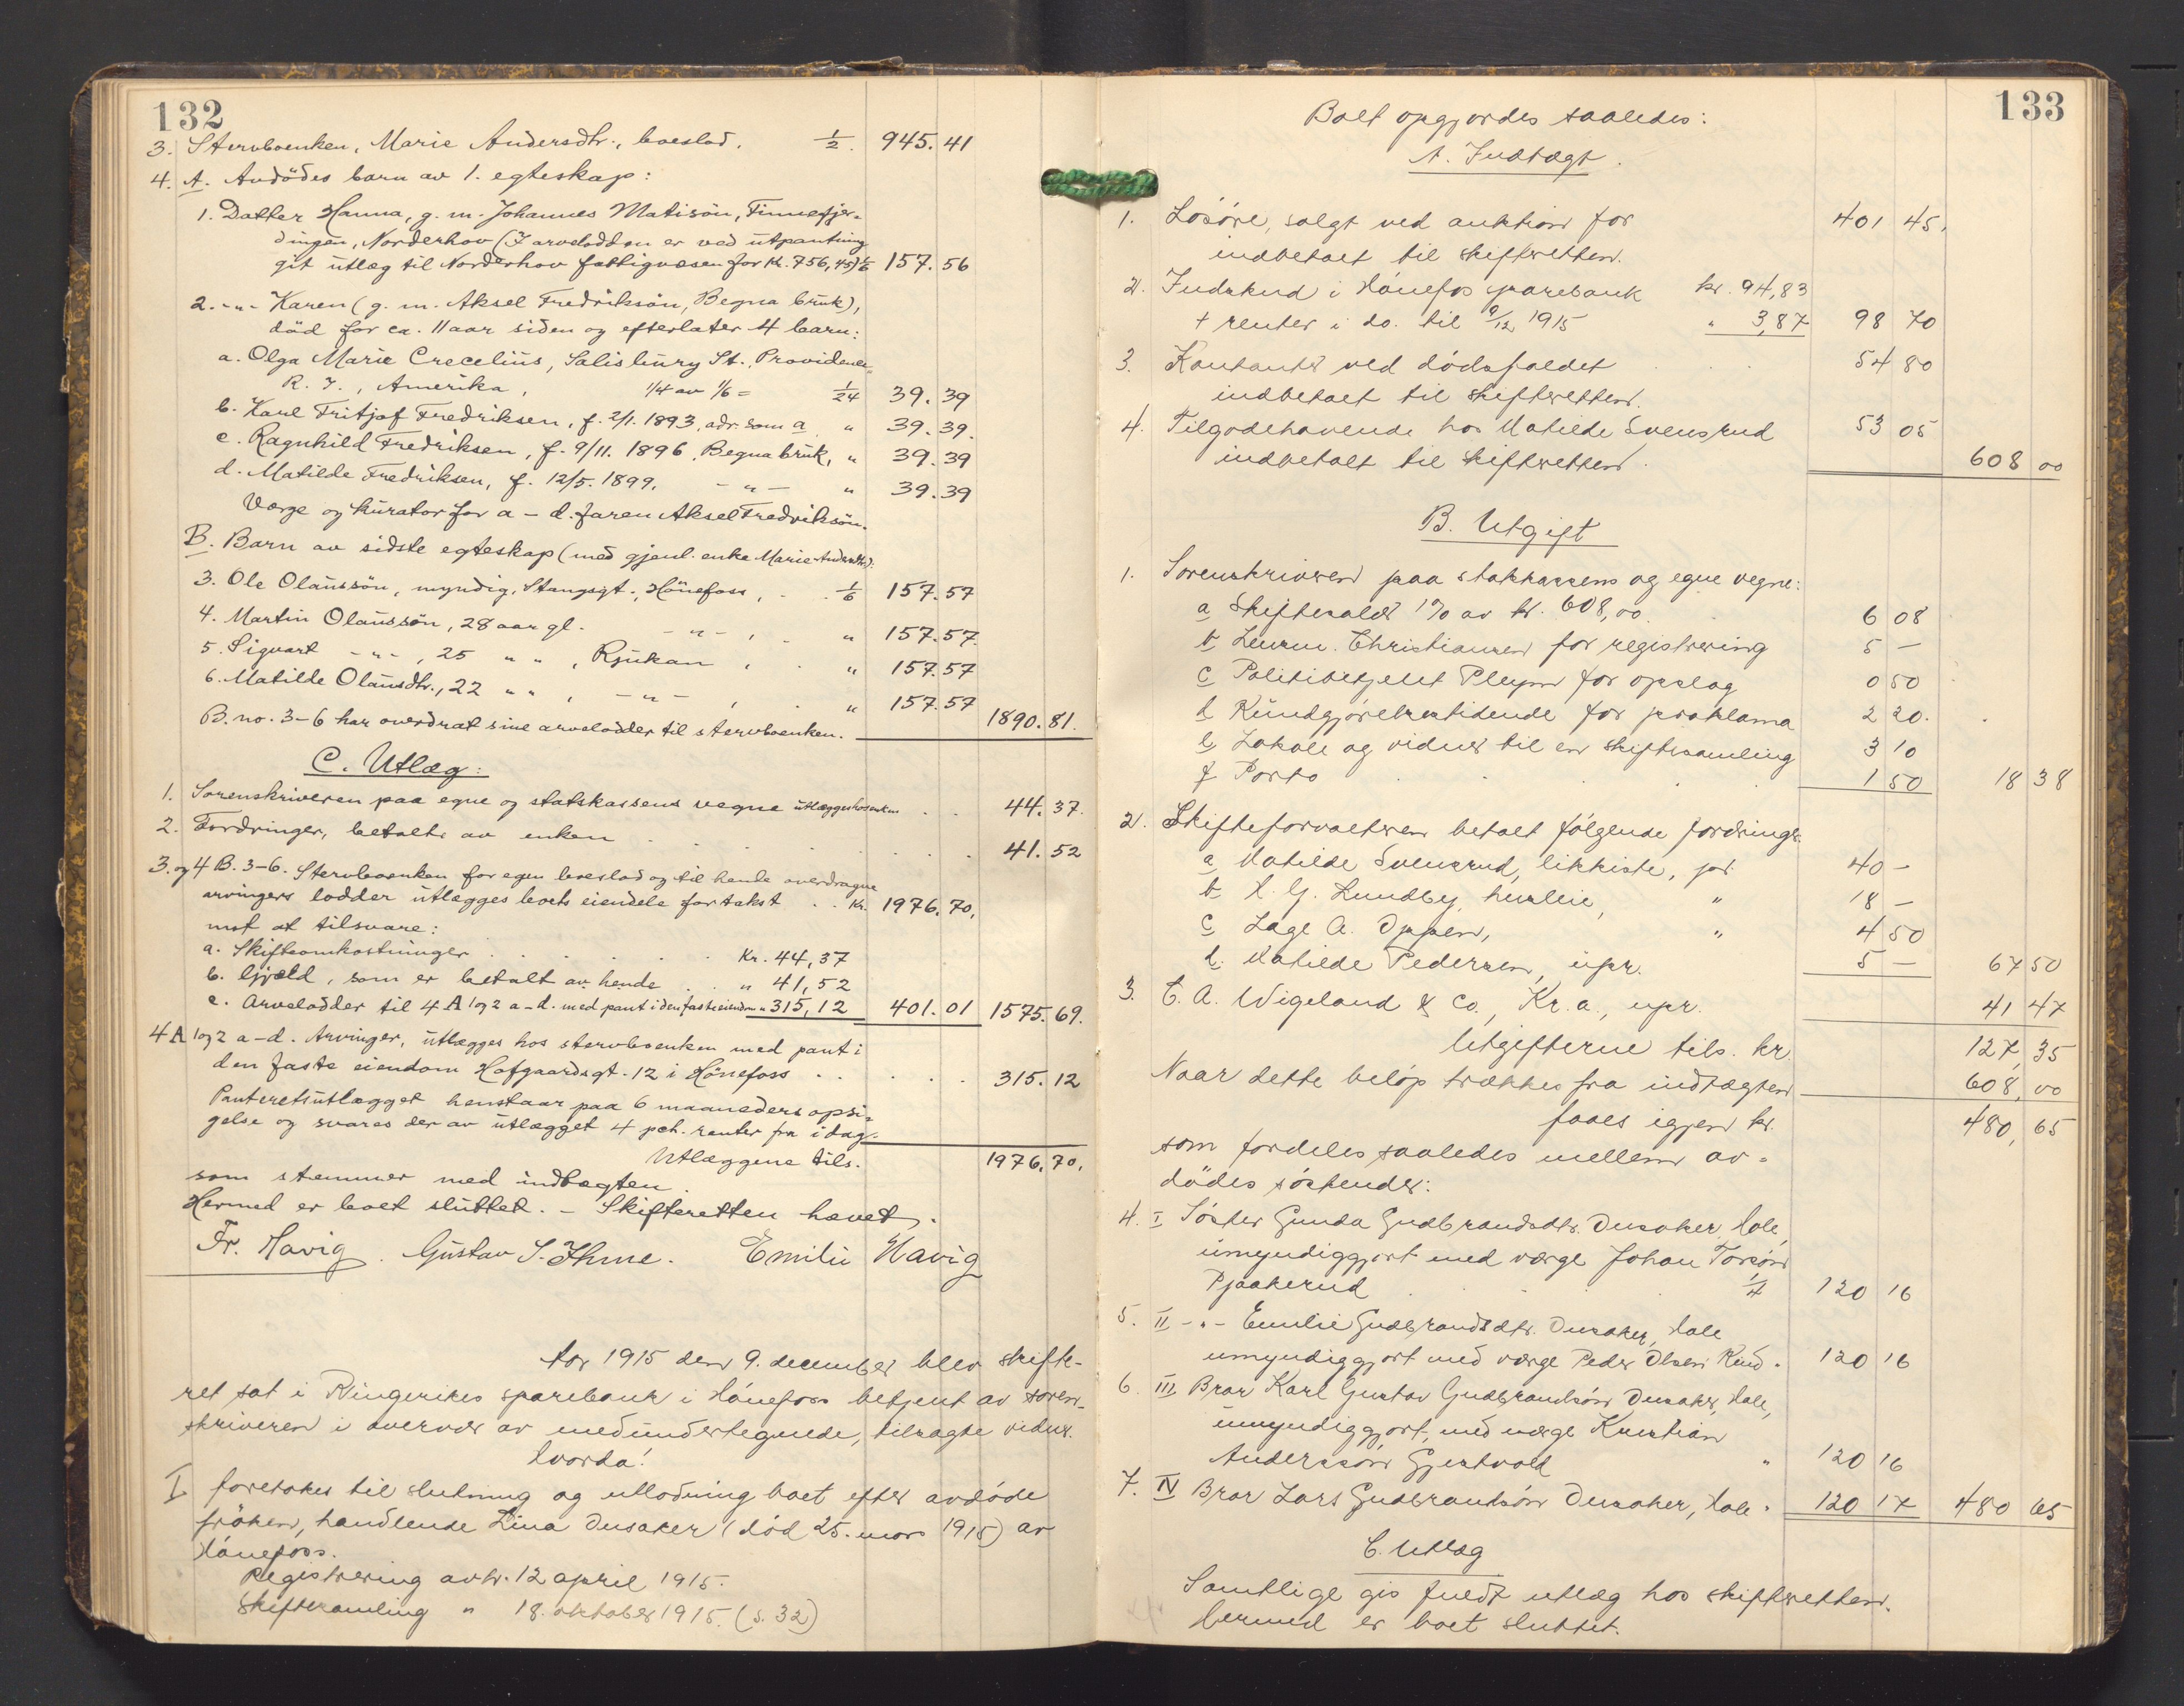 132
3. Stervboenken, Marie Andersdtr., boeslod. 1/2. 945.41
4. A. Avdödes barn av 1. egteskap:
1. Datter Hanna, g. m. Johannes Matisön, Finnefjer-
dingen, Norderhov (I arvelodden er ved utpantning
git utlæg til Norderhov fattigvæsen for kr. 756,45) 1/6 157.56
2. -"- Karen (g. m. Aksel Fredriksön, Begna bruk),
död for ca. 11 aar siden og efterlater 4 barn:
a. Olga Marie Crecelius, Salisbury St., Providence,
R. I., Amerika, 1/4 av 1/6 = 1/24 39.39
b. Karl Fritjof Fredriksen, f. 2/1. 1893, adr. som a " 39.39.
c. Ragnhild Fredriksen, f. 9/11. 1896, Begna bruk, " 39.39
d. Matilde Fredriksen, f. 12/5. 1899. -"- " 39.39
Værge og kurator for a - d. faren Aksel Fredriksön.
B. Barn av sidste egteskap (med gjenl. enke Marie Andersdtr.):
3. Ole Olaussön, myndig, Stangsgt., Hönefoss, . . 1/6 157.57
4. Martin Olaussön, 28 aar gl. -"- , . " 157.57.
5. Sigvart -"-, 25 " ", Rjukan , . " 157.57
6. Matilde Olausdtr., 22 " ", -"- , . " 157.57
B. no. 3-6 har overdrat sine arvelodder til stervboenken. 1890.81.
C. Utlæg:
1. Sorenskriveren paa egne og statskassens vegne utlægges hos enken . . 44.37.
2. Fordringer, betalt av enken . . . . . . . 41.52
3. og 4 B. 3-6. Stervboenken for egen boeslod og til hende overdragne
arvingers lodder utlægges boets eiendele for takst . . kr. 1976.70,
mot at tilsvare:
a. Skifteomkostninger . . . . . . Kr. 44,37
b. Gjæld, som er betalt av hende . . " 41,52
c. Arvelodder til 4 A 1 og 2 a-d. med pant i den faste eiendom " 315,12 401.01 1575.69.
4 A 1 og 2 a-d. Arvinger, utlægges hos stervboenken med pant i
den faste eiendom Hofgaardsgt. 12 i Hönefoss . . . . . 315.12
Panteretsutlægget henstaar paa 6 maaneders opsi-
gelse og svares der av utlægget 4 pct. renter fra idag.
Utlæggene tils. 1976.70.
som stemmer med indtægten.
Hermed er boet sluttet. - Skifteretten hævet.
Fr. Havig. Gustav S. Ihme. Emilie Havig
Aar 1915 den 9. december blev skifte-
ret sat i Ringerikes sparebank i Hönefoss betjent av soren-
skriveren i overvær av medundertegnede, tilsagte vidner.
Hvorda!
I foretokes til slutning og utlodning boet efter avdöde
fröken, handlende Lina Dusaker (död 25. mars 1915) av
Hönefoss.
Registrering avh. 12 april 1915.
Skiftesamling " 18. oktober 1915. (s. 32)
133
Boet opgjordes saaledes:
A. Indtægt.
1. Lösöre, solgt ved auktion for 401 45.
indbetalt til skifteretten.
2. Indskud i Hönefos sparebank kr. 94,83
+ renter i do. til 9/12 1915 " 3,87 98 70
3. Kontanter ved dödsfaldet . . 54 80
indbetalt til skifteretten.
4. Tilgodehavende hos Matilde Svensrud 53 05
indbetalt til skifteretten. 608 00
B. Utgift
1. Sorenskriveren paa statskassens og egne vegne:
a Skiftesalær 1% av kr. 608,00 6 08
b Lensm. Christiansen for registrering 5 -
c Politibetjent Pleym for opslag 0 50
d Kundgjörelsestidende for proklama 2 20.
e Lokale og vidner til en skiftesamling 3 10
f Porto . . . 1 50 18 38
2. Skifteforvalteren betalt følgende fordringer
a Matilde Svensrud, likkiste, pr. 40 -
b H. G. Lundby, husleie, " 18 -
c Lage A. Oppen, " 4 50
d. Matilde Pedersen, upr. 5 - 67 50
3. C. A. Wigeland & Co., Kr.a., upr. 41 47
Utgifterne tils. kr. 127,35
Naar dette belöp trækkes fra indtægten 608,00
faaes igjen kr. 480,65
som fordeles saaledes mellem av-
dödes söskender:
4. I Söster Gunda Gudbrandsdtr. Dusaker, Hole,
umyndiggjort med værge Johan Torsön
Pjaakerud . . . 1/4 120 16
5. II -"- Emilie Gudbrandsdtr. Dusaker, Hole
umyndiggjort med værge Peder Olsen Rud " 120 16
6. III Bror Karl Gustav Gudbrandsön Dusaker, Hole,
umyndiggjort, med værge Kristian
Anderssön Gjestvold " 120 16
7. IV Bror Lars Gudbrandsön Dusaker, Hole " 120 17 480 65
C. Utlæg
Samtlige gis fuldt utlæg hos skifteretten.
Hermed er boet sluttet.